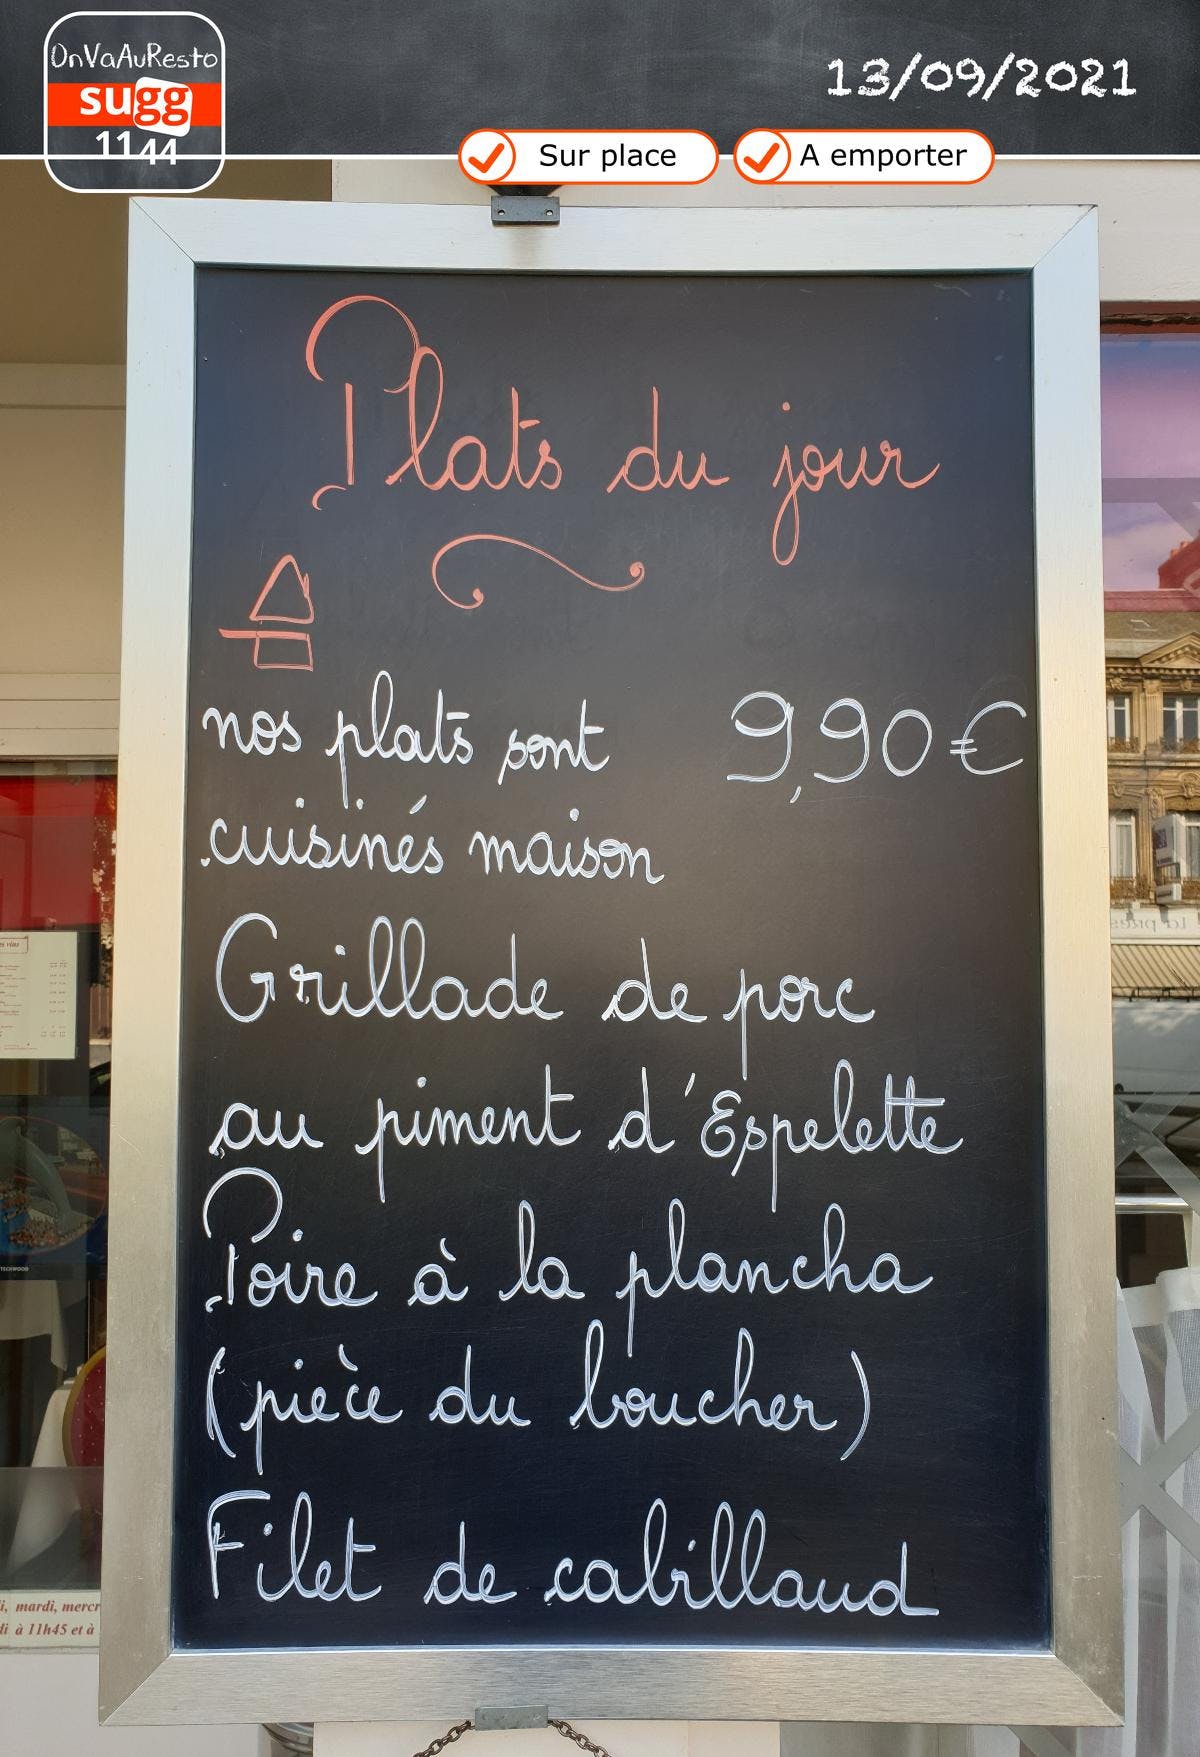 OnVaAuResto
sugg
1144
13/09/2021
Sur place
A emporter
Plats du jour
nos plats sont 9,90€
cuisinés maison
Grillade de porc
au piment d'Espelette
Poire à la plancha
(pièce du boucher)
Filet de cabillaud
TECHWOOD
i, mardi, mercr
di à 11h45 et à